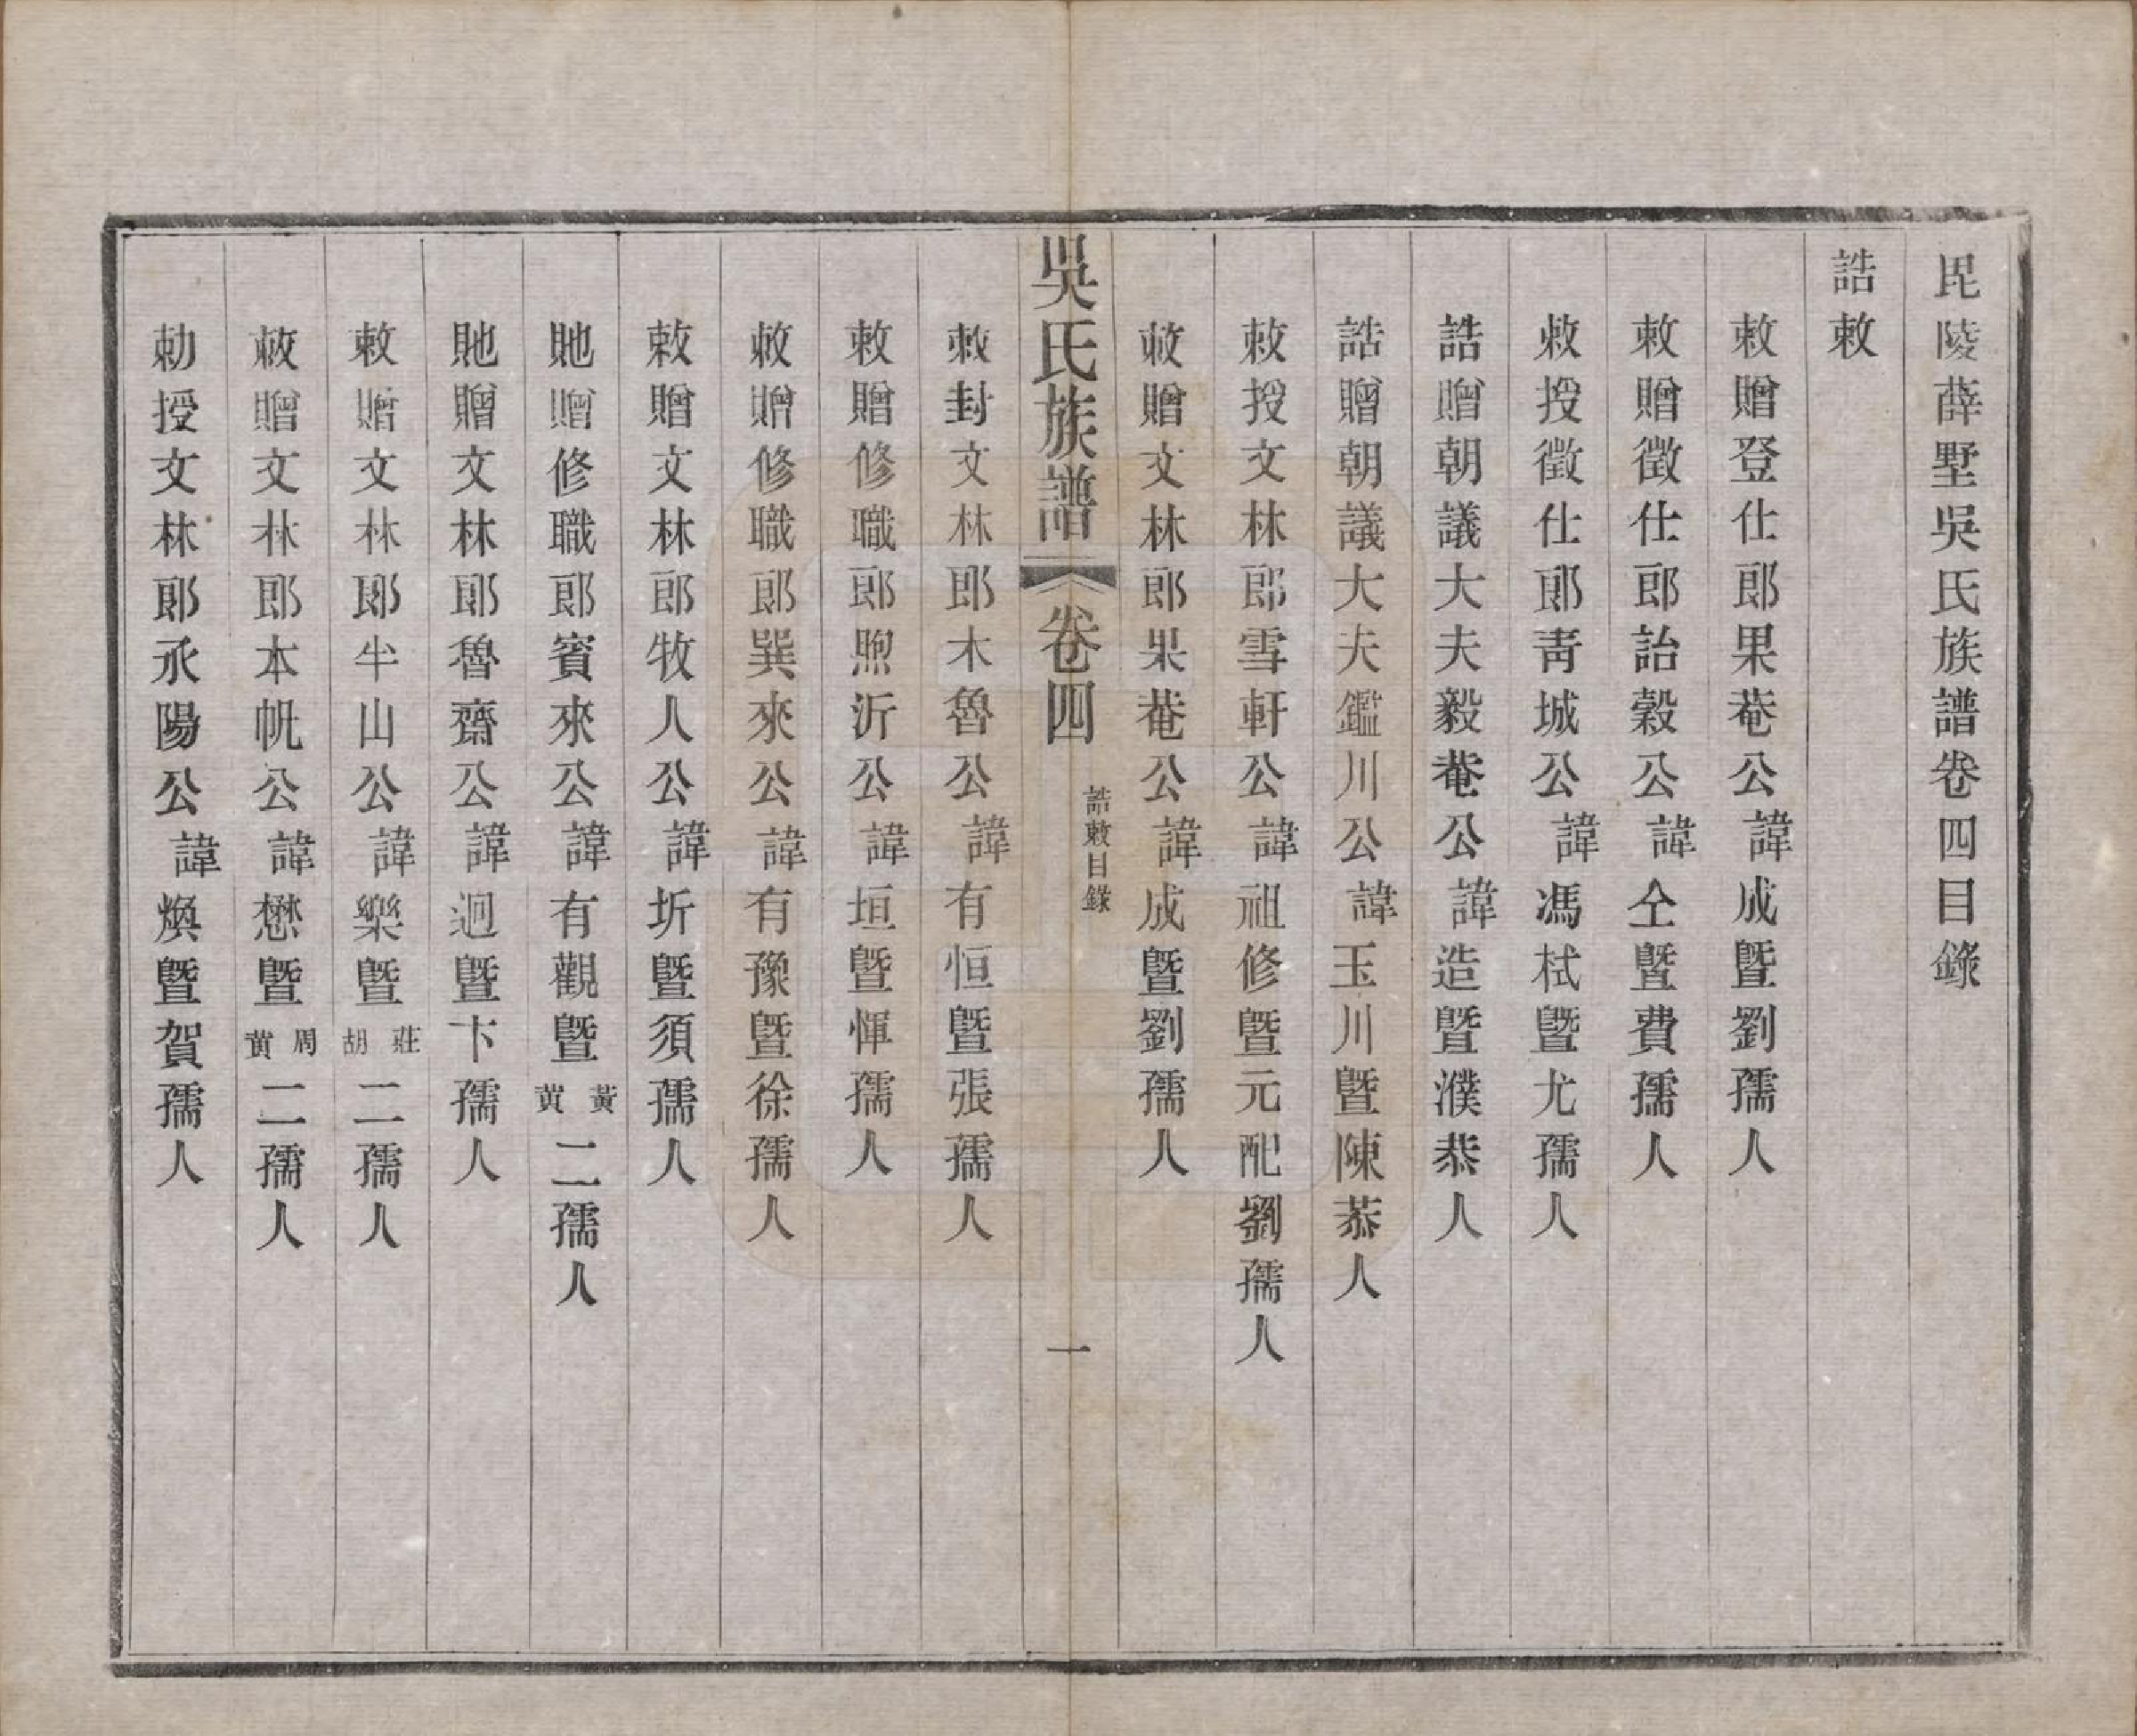 毘陵薛墅吳氏族譜卷四目錄
誥敕
敕贈登仕郎果菴公諱成暨劉孺人
敕贈徵仕郎詒穀公諱仝暨費孺人
敕授徵仕郎靑城公諱馮栻暨尤孺人
誥贈朝議大夫毅菴公諱造暨濮恭人
誥贈朝議大夫鑑川公諱玉川暨陳恭人
敕授文林郎雪軒公諱祖修暨元配劉孺人
敕贈文林郎果菴公諱成暨劉孺人
吳氏族譜 卷四 誥敕目錄 一
敕封文林郎木魯公諱有恒暨張孺人
敕贈修職郎煦沂公諱垣暨惲孺人
敕贈修職郎巽來公諱有豫暨徐孺人
敕贈文林郎牧人公諱圻暨須孺人
貤贈修職郎賓來公諱有觀暨黃黄二孺人
貤贈文林郎魯齋公諱迥暨卞孺人
敕贈文林郎半山公諱樂暨莊胡二孺人
敕贈文林郎本帆公諱懋暨周黄二孺人
勅授文林郎永陽公諱煥暨賀孺人